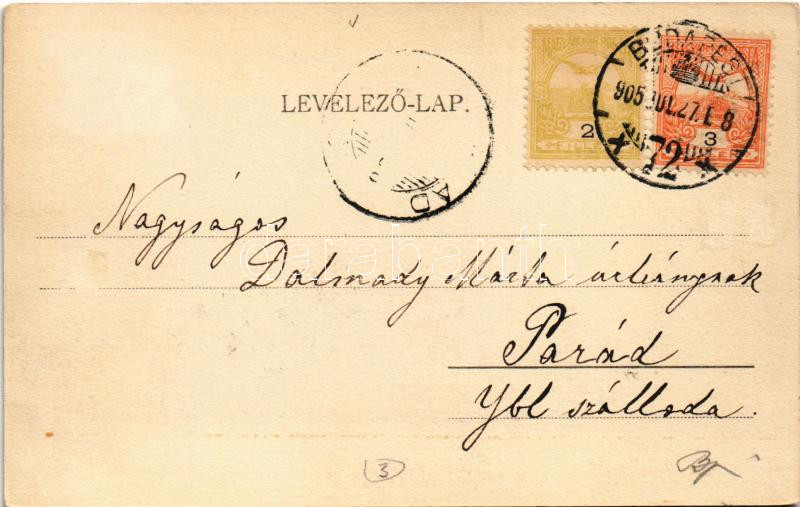 LEVELEZŐ-LAP.
2
FILLÉR
3
BUDAPEST
905 JUL. 27.
72
AD
Nagyságos
Dalmady Márta úrleánynak
Parád
Ybl szálloda.
3
Bp
darabanth